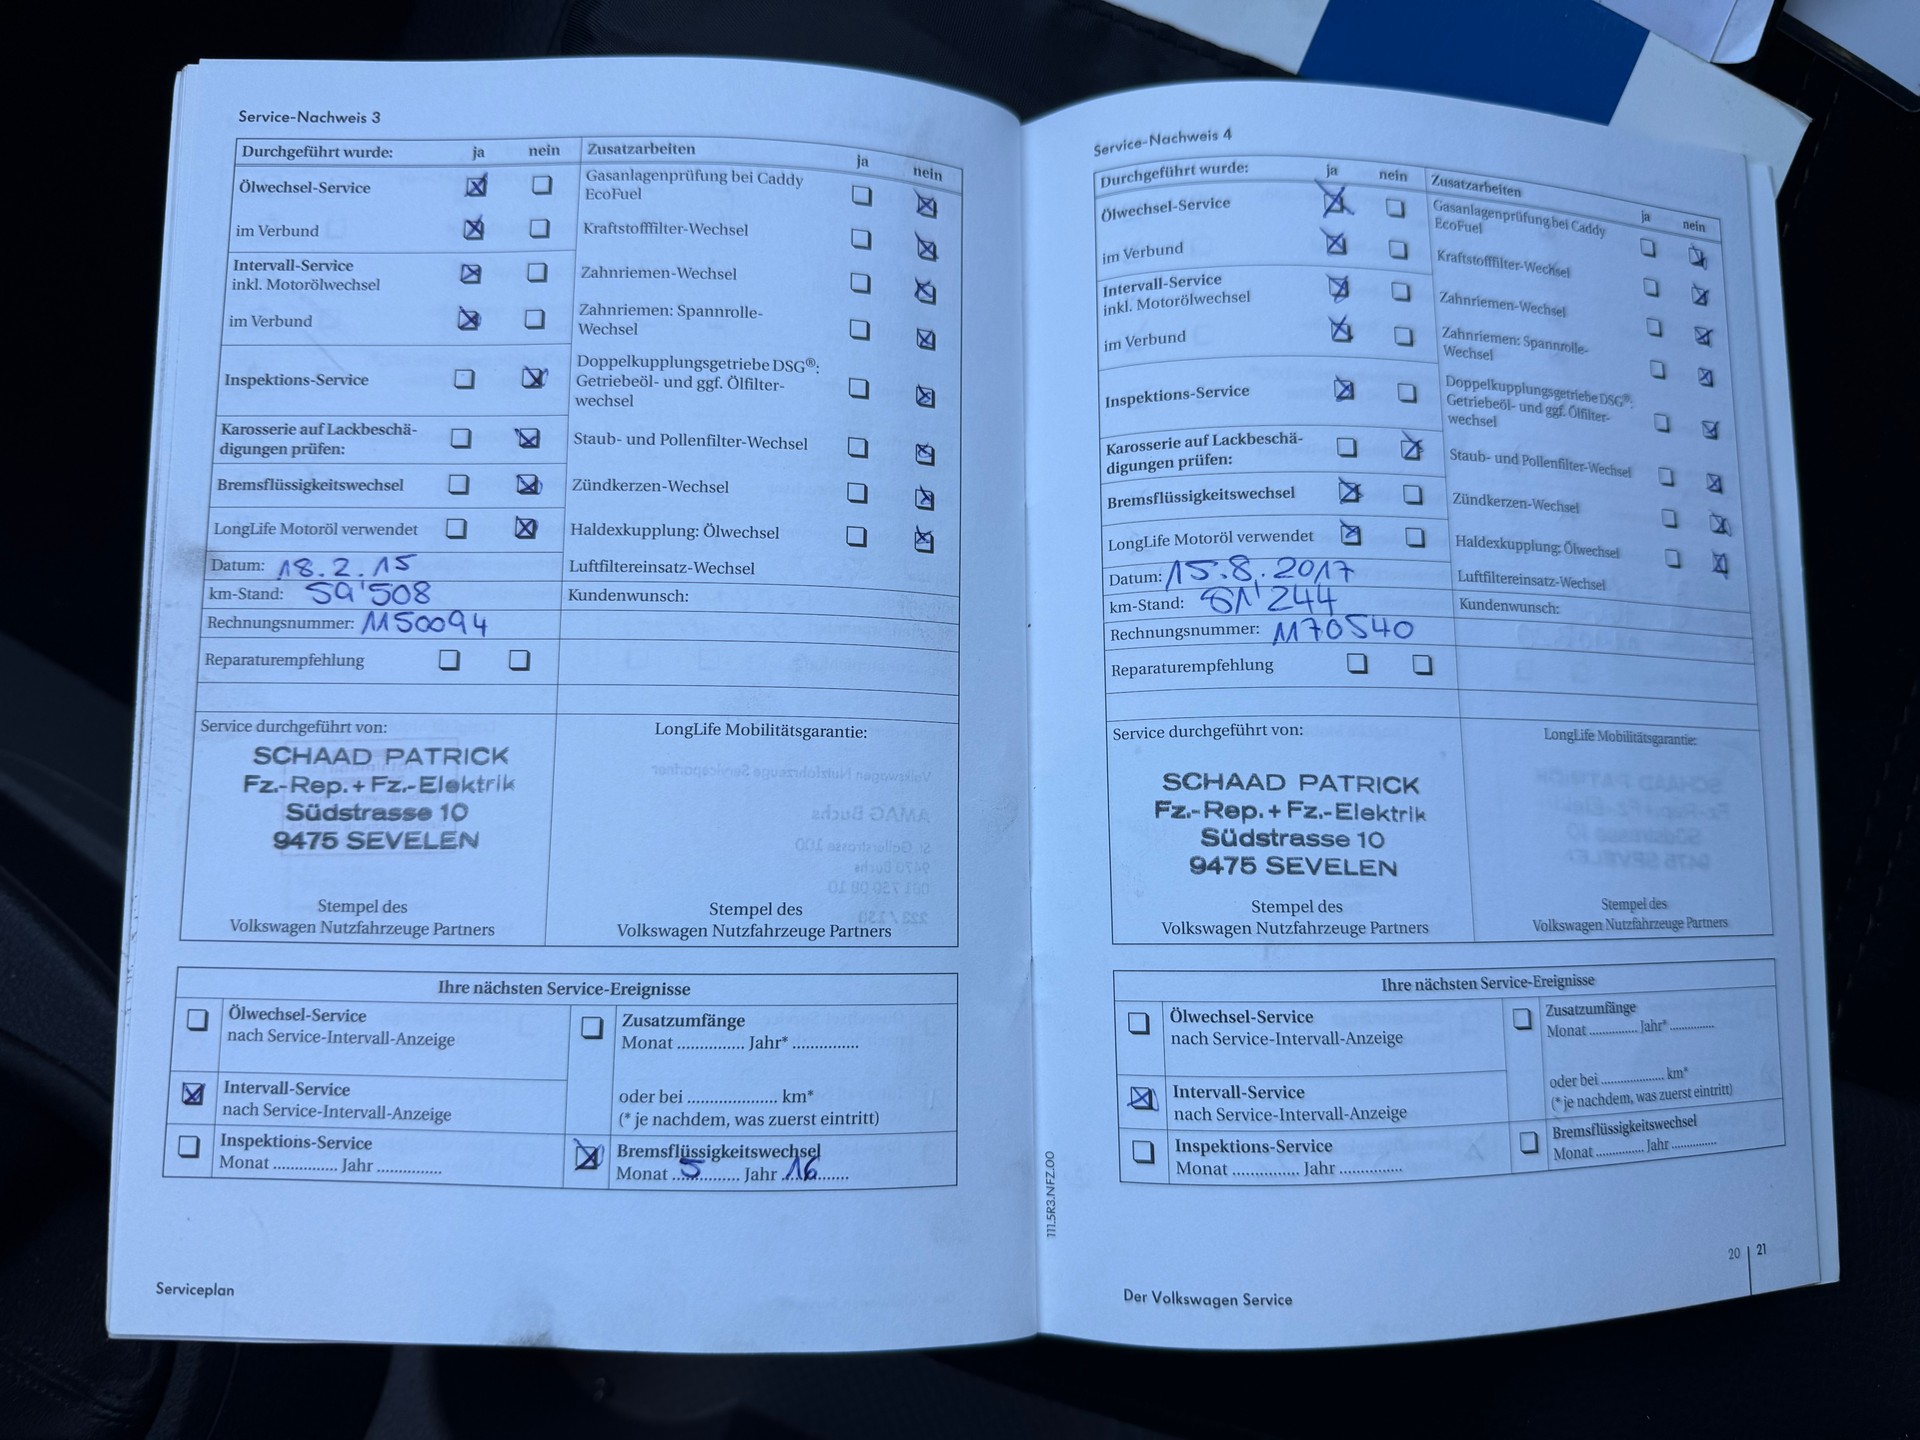 Service-Nachweis 3
Durchgeführt wurde: ja nein
Ölwechsel-Service
im Verbund
Intervall-Service
inkl. Motorölwechsel
im Verbund
Inspektions-Service
Karosserie auf Lackbeschä-
digungen prüfen:
Bremsflüssigkeitswechsel
LongLife Motoröl verwendet
Datum: 18.2.15
km-Stand: 59'508
Rechnungsnummer: 1150094
Reparaturempfehlung
Zusatzarbeiten ja nein
Gasanlagenprüfung bei Caddy
EcoFuel
Kraftstofffilter-Wechsel
Zahnriemen-Wechsel
Zahnriemen: Spannrolle-
Wechsel
Doppelkupplungsgetriebe DSG®:
Getriebeöl- und ggf. Ölfilter-
wechsel
Staub- und Pollenfilter-Wechsel
Zündkerzen-Wechsel
Haldexkupplung: Ölwechsel
Luftfiltereinsatz-Wechsel
Kundenwunsch:
Service durchgeführt von:
SCHAAD PATRICK
Fz.-Rep. + Fz.-Elektrik
Südstrasse 10
9475 SEVELEN
Stempel des
Volkswagen Nutzfahrzeuge Partners
LongLife Mobilitätsgarantie:
Stempel des
Volkswagen Nutzfahrzeuge Partners
Ihre nächsten Service-Ereignisse
Ölwechsel-Service
nach Service-Intervall-Anzeige
Intervall-Service
nach Service-Intervall-Anzeige
Inspektions-Service
Monat ............... Jahr ...............
Zusatzumfänge
Monat ............... Jahr* ...............
oder bei .................... km*
(* je nachdem, was zuerst eintritt)
Bremsflüssigkeitswechsel
Monat ...5......... Jahr ...16.......
Serviceplan
Service-Nachweis 4
Durchgeführt wurde: ja nein
Ölwechsel-Service
im Verbund
Intervall-Service
inkl. Motorölwechsel
im Verbund
Inspektions-Service
Karosserie auf Lackbeschä-
digungen prüfen:
Bremsflüssigkeitswechsel
LongLife Motoröl verwendet
Datum: 15.8.2017
km-Stand: 81'244
Rechnungsnummer: 1170540
Reparaturempfehlung
Zusatzarbeiten ja nein
Gasanlagenprüfung bei Caddy
EcoFuel
Kraftstofffilter-Wechsel
Zahnriemen-Wechsel
Zahnriemen: Spannrolle-
Wechsel
Doppelkupplungsgetriebe DSG®:
Getriebeöl- und ggf. Ölfilter-
wechsel
Staub- und Pollenfilter-Wechsel
Zündkerzen-Wechsel
Haldexkupplung: Ölwechsel
Luftfiltereinsatz-Wechsel
Kundenwunsch:
Service durchgeführt von:
SCHAAD PATRICK
Fz.-Rep. + Fz.-Elektrik
Südstrasse 10
9475 SEVELEN
Stempel des
Volkswagen Nutzfahrzeuge Partners
LongLife Mobilitätsgarantie:
Stempel des
Volkswagen Nutzfahrzeuge Partners
Ihre nächsten Service-Ereignisse
Ölwechsel-Service
nach Service-Intervall-Anzeige
Intervall-Service
nach Service-Intervall-Anzeige
Inspektions-Service
Monat ............... Jahr ...............
Zusatzumfänge
Monat ............... Jahr* ...............
oder bei .................... km*
(* je nachdem, was zuerst eintritt)
Bremsflüssigkeitswechsel
Monat ............... Jahr ...............
111.5R3.NFZ.00
20 | 21
Der Volkswagen Service